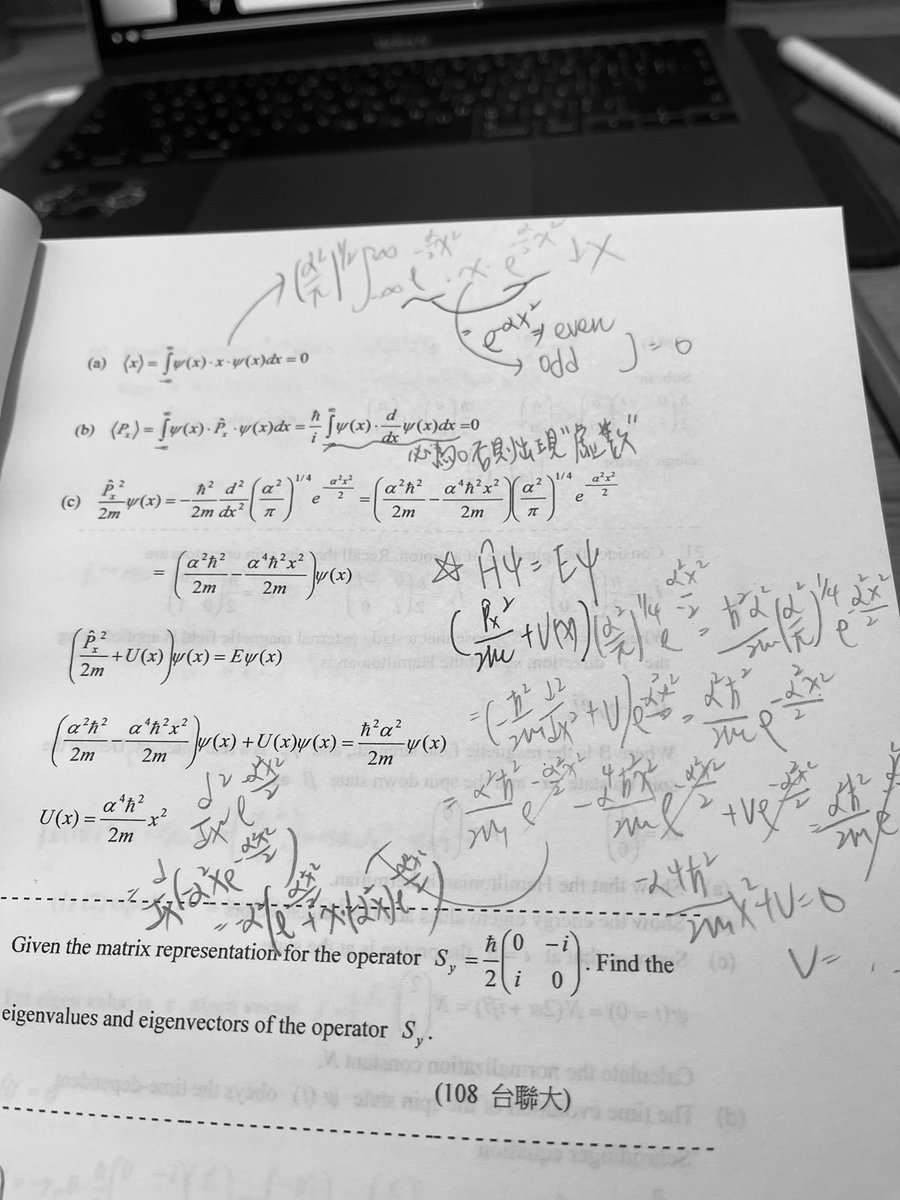 (α²/π)^1/2 ∫_-∞^∞ e^-α²/2 x² · x · e^-α²/2 x² dx
= e^-αx² ⇒ even
→ odd } = 0
(a) ⟨x⟩ = ∫_-∞^∞ ψ(x)·x·ψ(x)dx = 0
(b) ⟨P_x⟩ = ∫_-∞^∞ ψ(x)·P̂_x·ψ(x)dx = ħ/i ∫_-∞^∞ ψ(x)·d/dx ψ(x)dx = 0
必為0 否則出現"虛數"
(c) P̂_x²/2m ψ(x) = -ħ²/2m d²/dx² (α²/π)^1/4 e^-α²x²/2 = (α²ħ²/2m - α⁴ħ²x²/2m)(α²/π)^1/4 e^-α²x²/2
= (α²ħ²/2m - α⁴ħ²x²/2m)ψ(x)
☆ Ĥψ = Eψ
(P_x²/2m + V(x))(α²/π)^1/4 e^-α²x²/2 = ħ²α²/2m (α²/π)^1/4 e^-α²x²/2
(P̂_x²/2m + U(x))ψ(x) = Eψ(x)
= (-ħ²/2m d²/dx² + V)e^-α²x²/2 = α²ħ²/2m e^-α²x²/2
(α²ħ²/2m - α⁴ħ²x²/2m)ψ(x) + U(x)ψ(x) = ħ²α²/2m ψ(x)
= α²ħ²/2m e^-α²x²/2 - α⁴ħ²x²/2m e^-α²x²/2 + Ve^-α²x²/2 = α²ħ²/2m e
U(x) = α⁴ħ²/2m x²
d²/dx² e^-α²x²/2
= d/dx (-α²xe^-α²x²/2)
= -α²(e^-α²x²/2 + x·(-α²x)e^-α²x²/2)
-α⁴ħ²/2m x² + V = 0
V = ...
Given the matrix representation for the operator S_y = ħ/2 (0 -i
i 0). Find the
eigenvalues and eigenvectors of the operator S_y.
(108 台聯大)